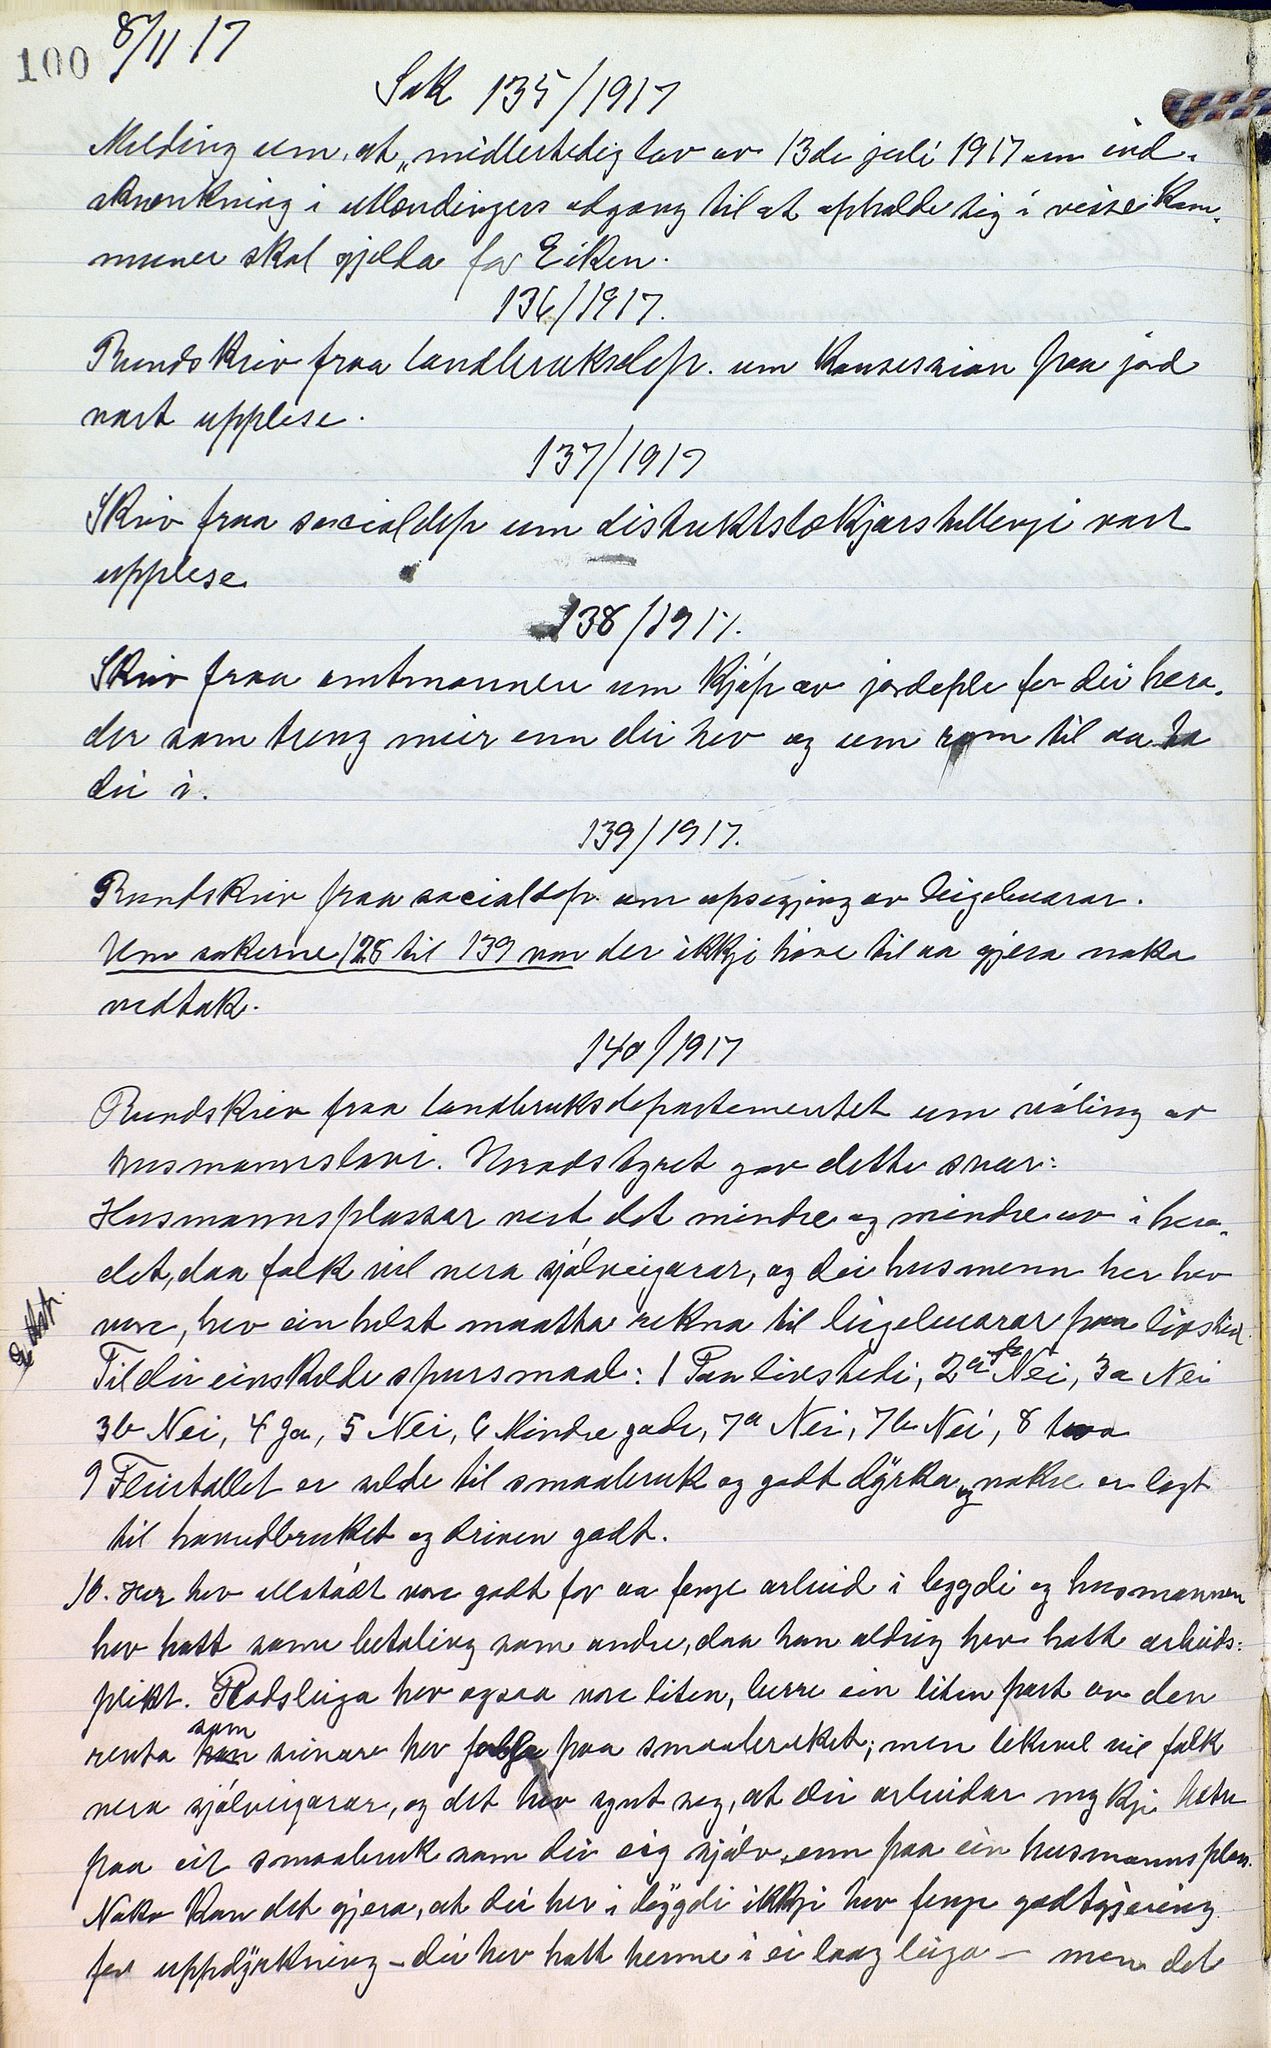 100 8/11 17
Sak 135/1917
Melding um, at "midlertidig lov av 13de juli 1917 um ind-
skrænkning i utlændingers adgang til at opholde sig i visse kom-
muner skal gjelda for Eiken.
136/1917.
Rundskriv fraa landbruksdep. um konsession paa jord
vart upplese.
137/1917
Skriv fraa socialdep um distriktslækjarstillingi vart
upplese
138/1917.
Skriv fraa amtmannen um kjøp av jordeple for dei hera-
der som treng meir enn dei hev og um rom til aa ha
dei i.
139/1917.
Rundskriv fraa socialdep um upsegjing av leigebuarar.
Um sakerne 128 til 139 var der ikkje høve til aa gjera noko
vedtak.
140/1917
Rundskriv fraa landbruksdepartementet um våling av
husmannslovi. Heradstyret gav dette svar:
Husmannsplassar vert det mindre og mindre av i hera-
det, daa folk vil vera sjølveigarar, og dei husmenn her hev
vore, hev ein helst maatta rekna til leigebuarar paa livstid.
Til dei einskilde spursmaal: 1 Paa livstidi, 2a Nei, 3a Nei
3b Nei, 4 Ja, 5 Nei, 6 Mindre gode, 7a Nei, 7b Nei, 8 två
9 Fleirtallet er selde til smaabruk og godt dyrka og nokre er lagt
til hovudbruket og driven godt.
10. Her hev alstødt vore godt for aa fenge arbeid i bygdi og husmannen
hev hatt same betaling som andre, daa han aldrig hev hatt arbeids-
plikt. Plasleiga hev ogsaa vore liten, berre ein liten part av den
renta som seinare hev falle paa smaabruket; men likevel vil folk
vera sjølveigarar, og det hev synt seg, at dei arbeidar mykje betre
paa eit smaabruk som dei eig sjølv, enn paa ein husmannsplass.
Noko kan det gjera, at dei her i bygdi ikkje hev fenge godtgjering
for uppdyrkning – dei hev hatt henne i ei laag leiga – men det